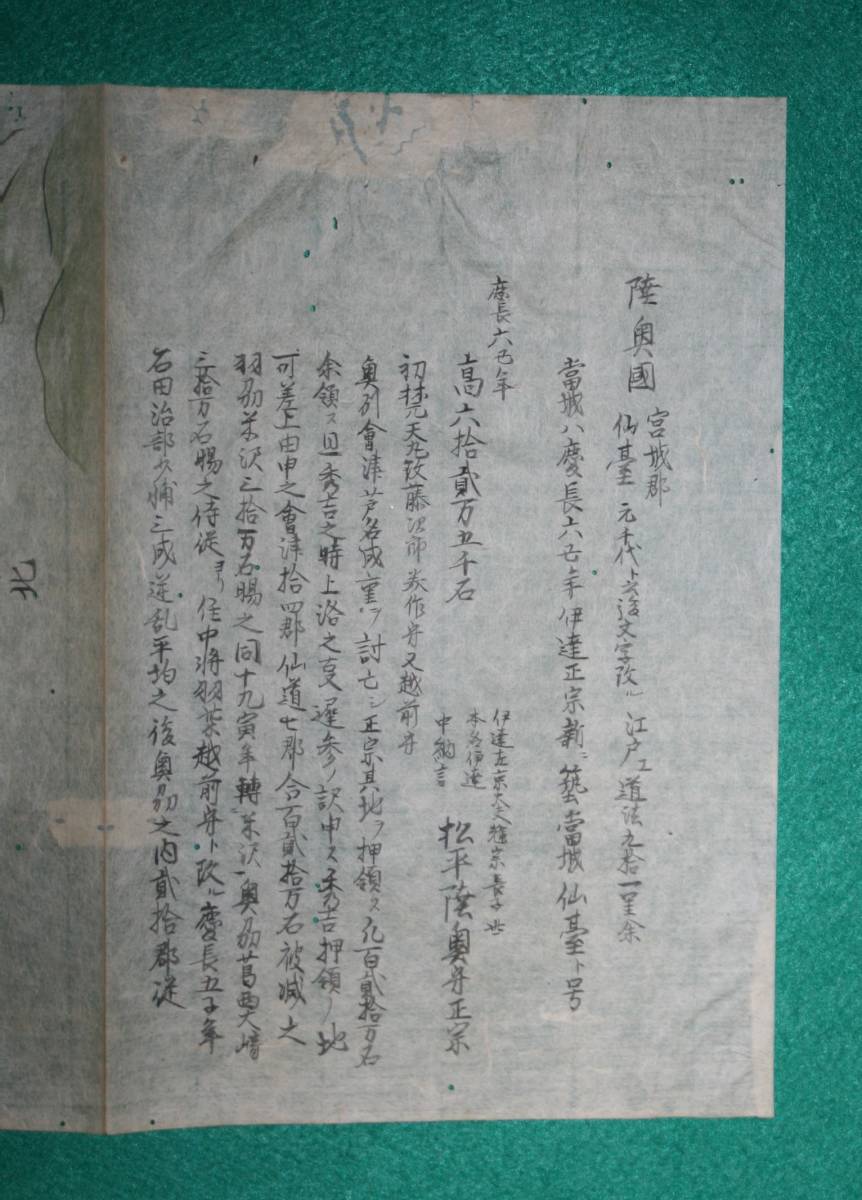 陸奥國
宮城郡
仙臺 元千代ト云後文字改ル 江戸エ道法九拾一里余
當城ハ慶長六丑年伊達正宗新ニ築當城仙臺ト号
慶長六丑年
高六拾貳万五千石
伊達左京大夫輝宗長子
本名伊達
中納言
松平陸奥守正宗
初梵天丸改藤次郎美作守又越前守
奥州會津芦名成重ヲ討亡シ正宗其地ヲ押領ス凡百貳拾万石
余領ス且秀吉之時上洛之支遲参ノ訳申ス秀吉押領ノ地
可差上由申之會津拾四郡仙道七郡合百貳拾万石被減之
羽刕米沢三拾万石賜之同十九寅年轉米沢奥刕葛西大崎
三拾万石賜之侍従ヨリ任中将羽柴越前守ト改ル慶長五子年
石田治部少輔三成逆乱平均之後奥刕之内貳拾郡従
北